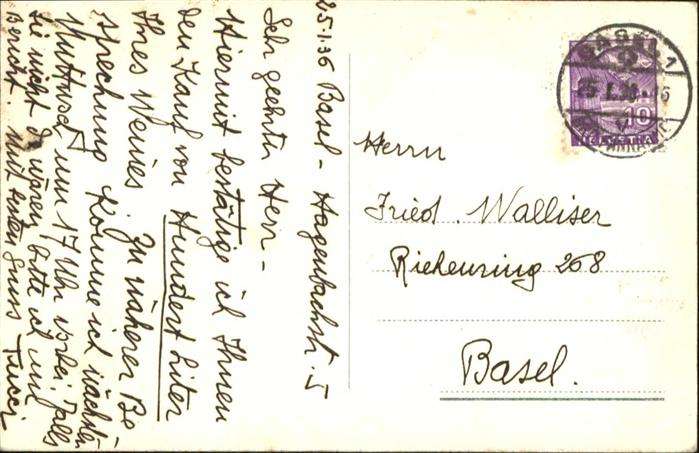 25.1.36 Basel - Hagenbachstr. 5
Sehr geehrter Herr -
Hiermit bestätige ich Ihnen
den Kauf von Hundert Liter
Ihres Weines. Zu näherer Be
sprechung komme ich nächsten
um 17 Uhr vorbei. Falls
Sie nicht da wären bitte ich um
Bericht. Mit bestem Gruss Tucci
Herrn
Fried. Walliser
Riehenring 208
Basel.
BASEL 1
25.I.36
10
HELVETIA